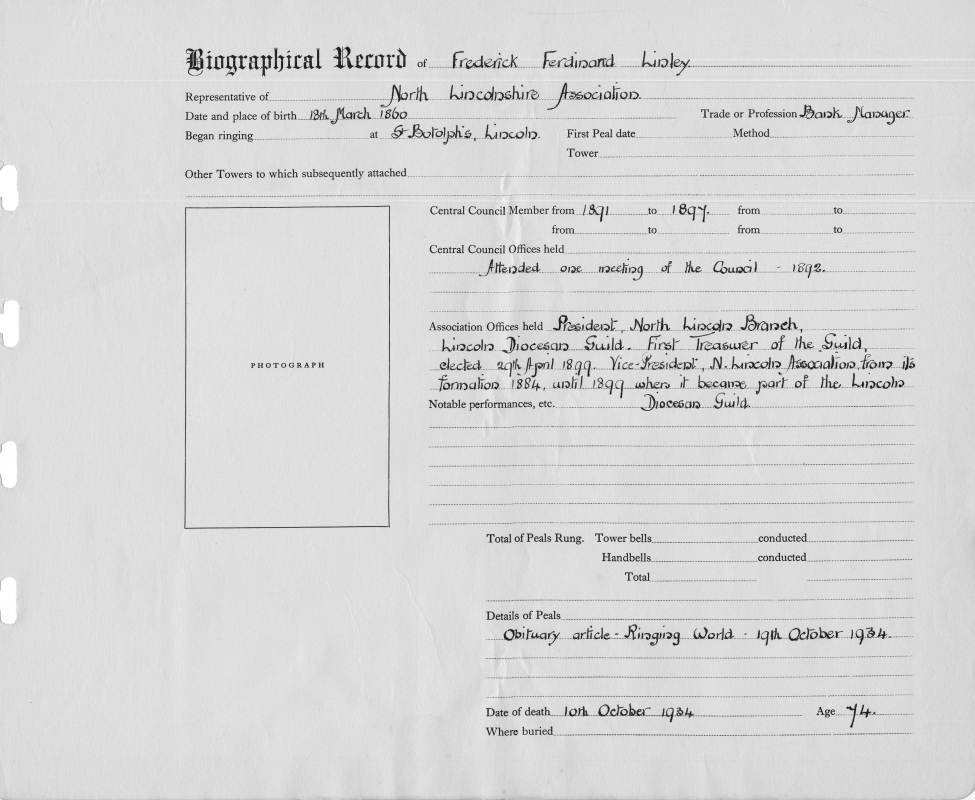 Biographical Record of Frederick Ferdinand Linley.
Representative of North Lincolnshire Association.
Date and place of birth 13th March 1860 Trade or Profession Bank Manager.
Began ringing at St Botolph's, Lincoln. First Peal date Method
Tower
Other Towers to which subsequently attached
Central Council Member from 1891 to 1897. from to
from to from to
Central Council Offices held
Attended one meeting of the Council - 1892.
PHOTOGRAPH
Association Offices held President, North Lincoln Branch,
Lincoln Diocesan Guild. First Treasurer of the Guild,
elected 29th April 1899. Vice-President, N. Lincoln Association, from its
formation 1884, until 1899 when it became part of the Lincoln
Notable performances, etc. Diocesan Guild.
Total of Peals Rung. Tower bells conducted
Handbells conducted
Total
Details of Peals
Obituary article - Ringing World - 19th October 1934.
Date of death 10th October 1934 Age 74.
Where buried